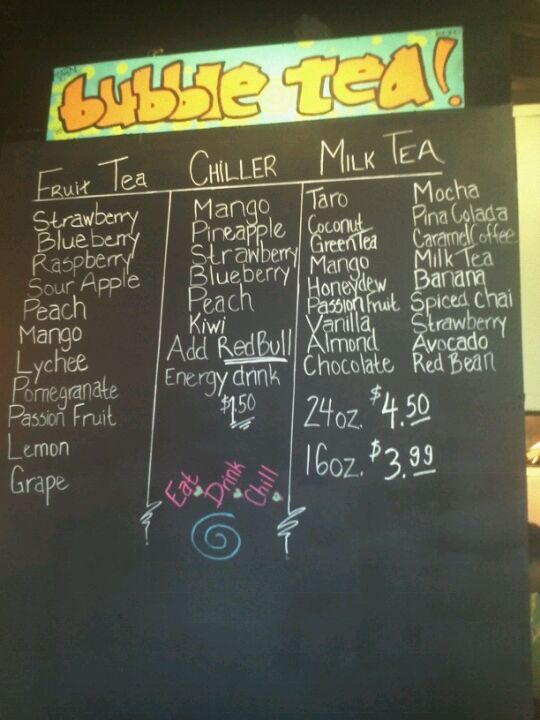 bubble tea!
Fruit Tea
Strawberry
Blueberry
Raspberry
Sour Apple
Peach
Mango
Lychee
Pomegranate
Passion Fruit
Lemon
Grape
Chiller
Mango
Pineapple
Strawberry
Blueberry
Peach
Kiwi
Add Red Bull
Energy drink
$1.50
Eat. Drink. Chill.
Milk Tea
Taro
Coconut
Green Tea
Mango
Honeydew
Passion Fruit
Vanilla
Almond
Chocolate
Mocha
Pina Colada
Caramel Coffee
Milk Tea
Banana
Spiced Chai
Strawberry
Avocado
Red Bean
24oz. $4.50
16oz. $3.99